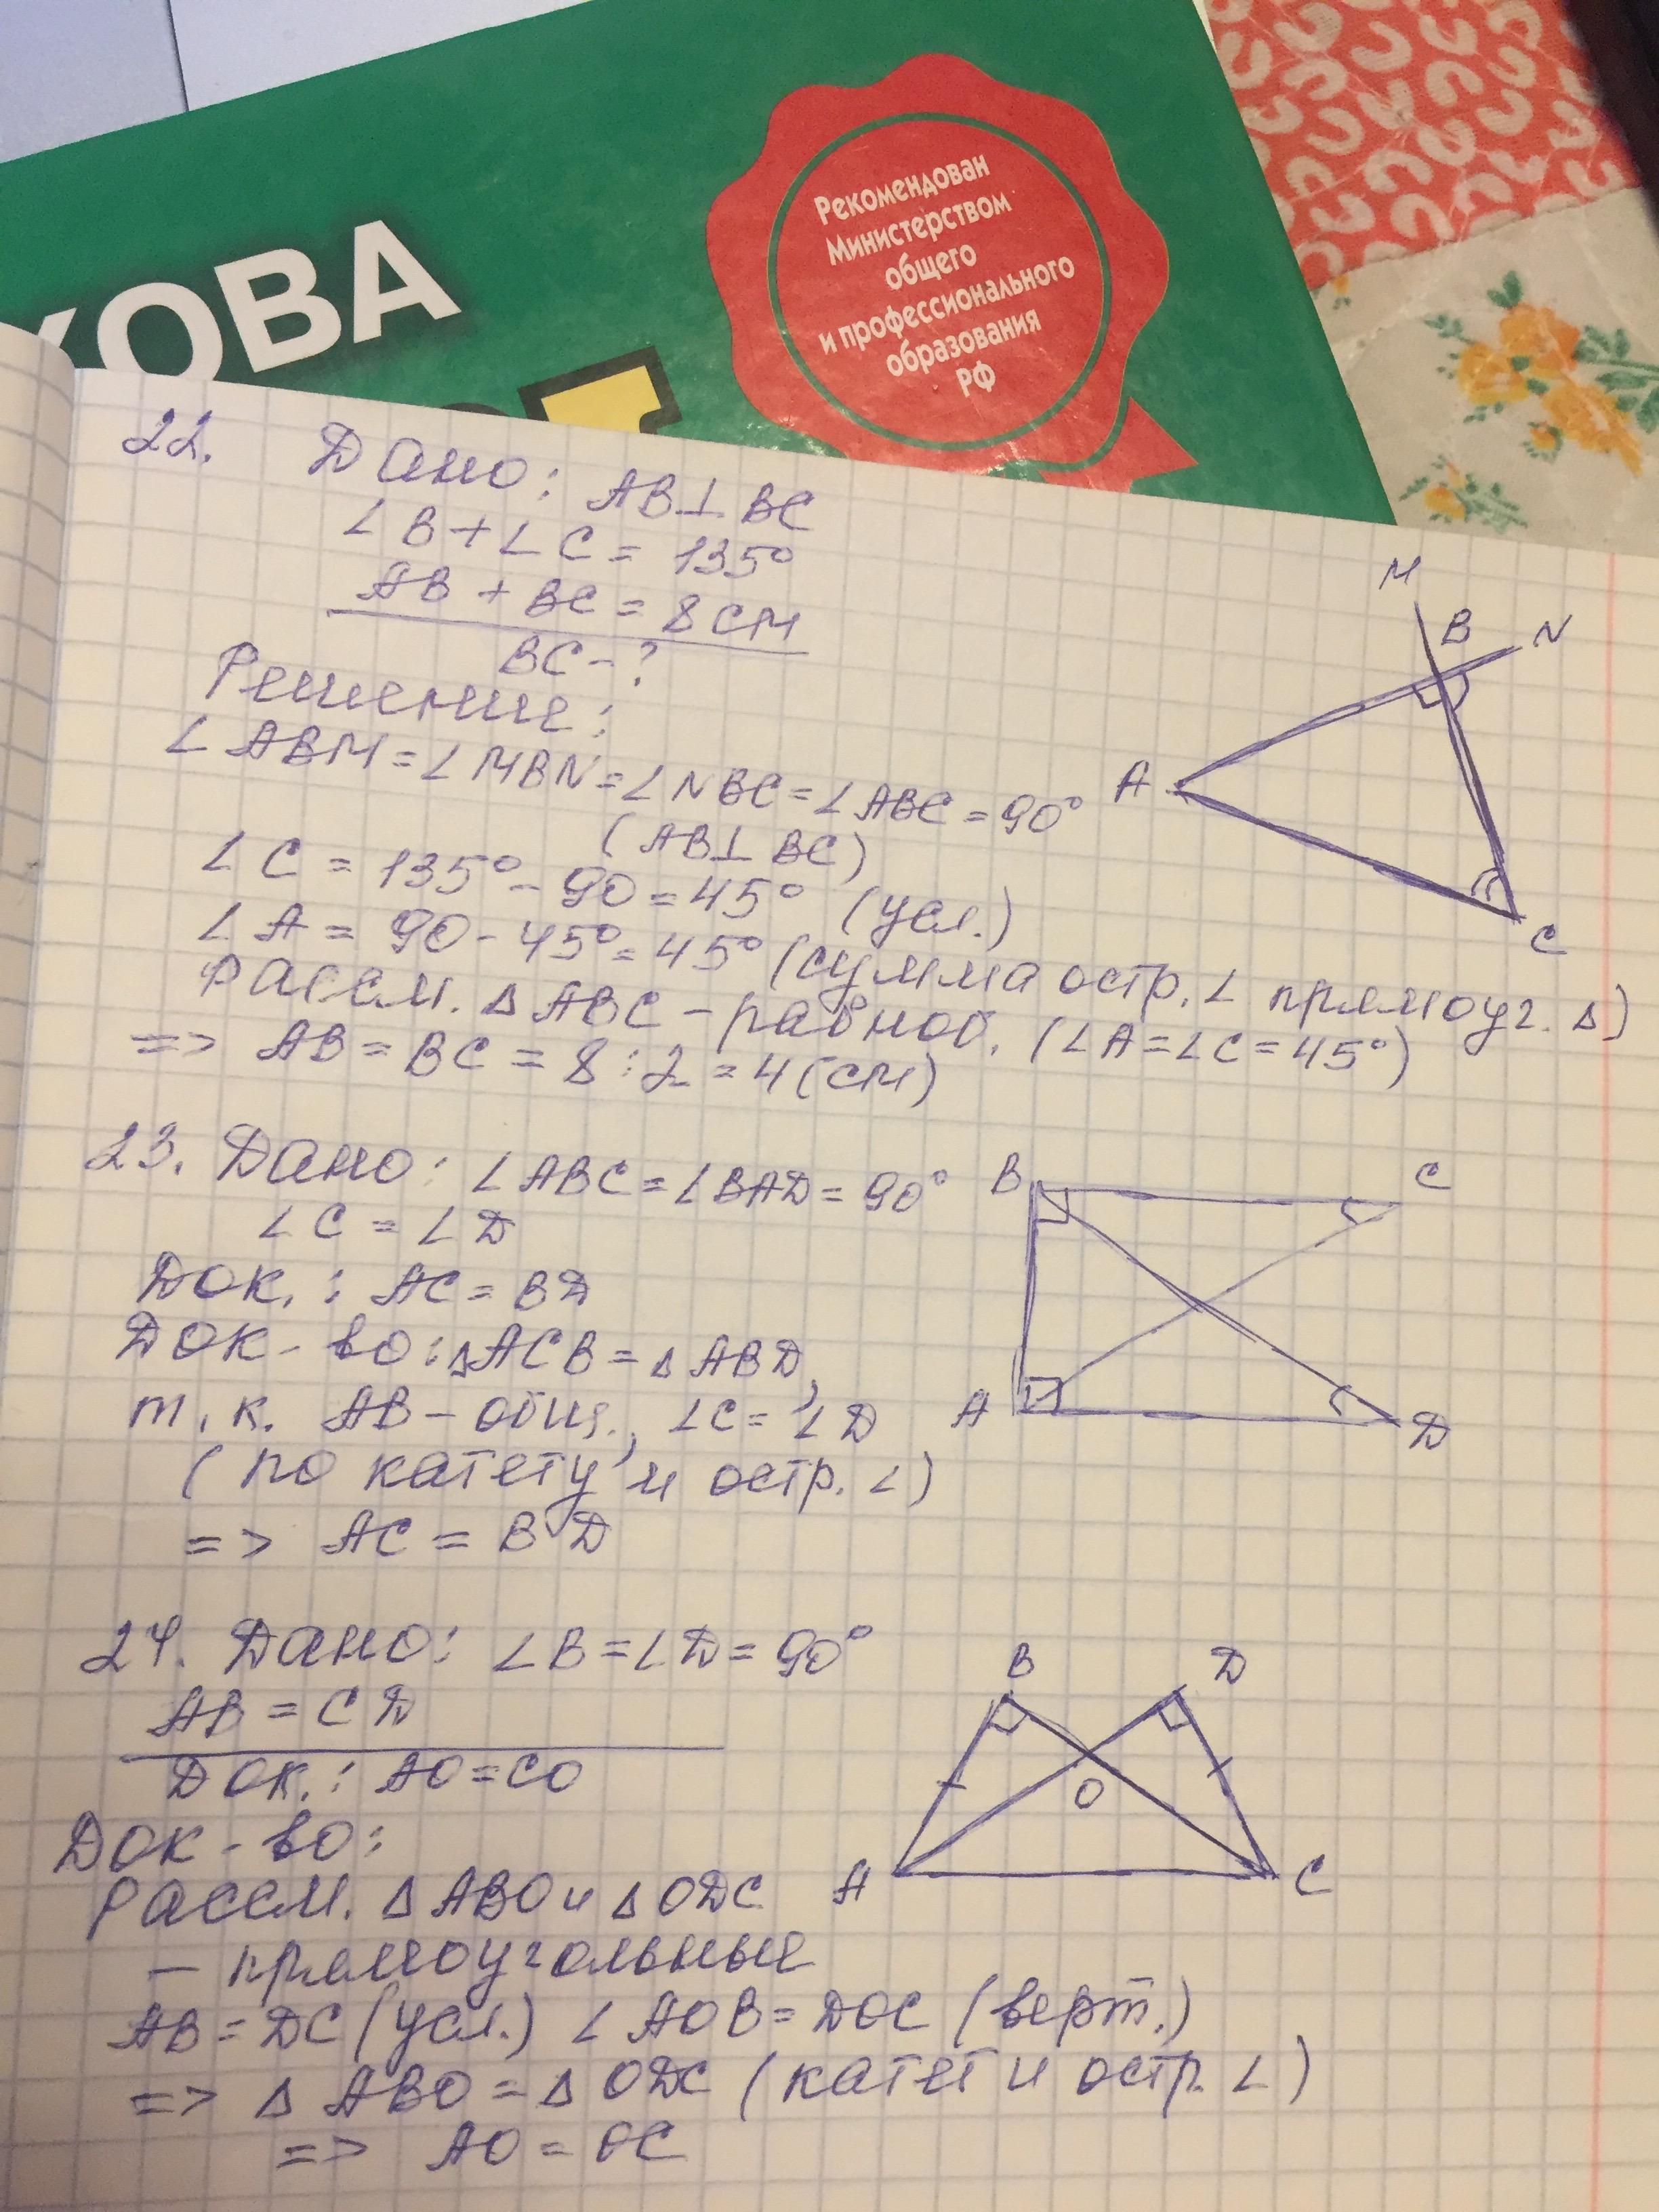 Рекомендован
Министерством
общего
и профессионального
образования
РФ
КОВА
22. Дано: AB⊥BC
∠B+∠C=135°
AB+BC=8см
BC-?
Решение:
∠ABM=∠MBN=∠NBC=∠ABC=90°
(AB⊥BC)
∠C=135°-90=45° (усл.)
∠A=90-45°=45° (сумма остр. ∠ прямоуг. Δ)
Рассм. ΔABC-равноб. (∠A=∠C=45°)
=> AB=BC=8:2=4(см)
M
B N
A
C
23. Дано: ∠ABC=∠BAD=90°
∠C=∠D
Док.: AC=BD
Док-во: ΔACB=ΔABD,
т.к. AB-общ., ∠C=∠D
(по катету и остр. ∠)
=> AC=BD
B C
A D
24. Дано: ∠B=∠D=90°
AB=CD
Док.: AO=CO
Док-во:
Рассм. ΔABO и ΔODC
- прямоугольные
AB=DC(усл.) ∠AOB=DOC (верт.)
=> ΔABO=ΔODC (катет и остр. ∠)
=> AO=OC
B D
O
A C